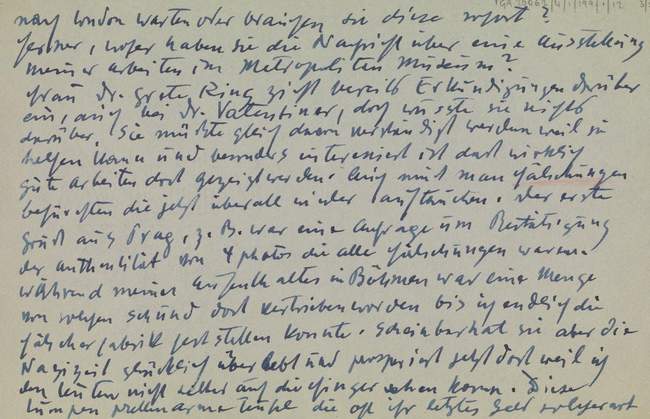 nach London warten oder brauchen sie diese sofort?
ferner, woher haben sie die Nachricht über eine Ausstellung
meiner Arbeiten im Metropoliten Museum?
Frau Dr. Grete Ring zieht bereits Erkundigungen darüber
ein, auch bei Dr. Valentiner, doch wusste sie nichts
darüber. Sie müsste gleich davon verständigt werden weil sie
helfen kann und besonders interessiert ist dass wirklich
gute Arbeiten dort gezeigt werden. Auch muss man Fälschungen
befürchten die jetzt überall wieder auftauchen. Der erste
Gruss aus Prag, z. B. war eine Anfrage um Bestätigung
der Authentität von 4 photos die alle Fälschungen waren.
Während meines Aufenthaltes in Böhmen war eine Menge
von solchem Schund dort vertrieben worden bis ich endlich die
Fälscherfabrik feststellen konnte. Scheinbar hat sie aber die
Nazizeit glücklich überlebt und prosperiert jetzt dort weil ich
den Leuten nicht selber auf die Finger sehen kann. Diese
Lumpen arme Teufel die oft ihr letztes Geld